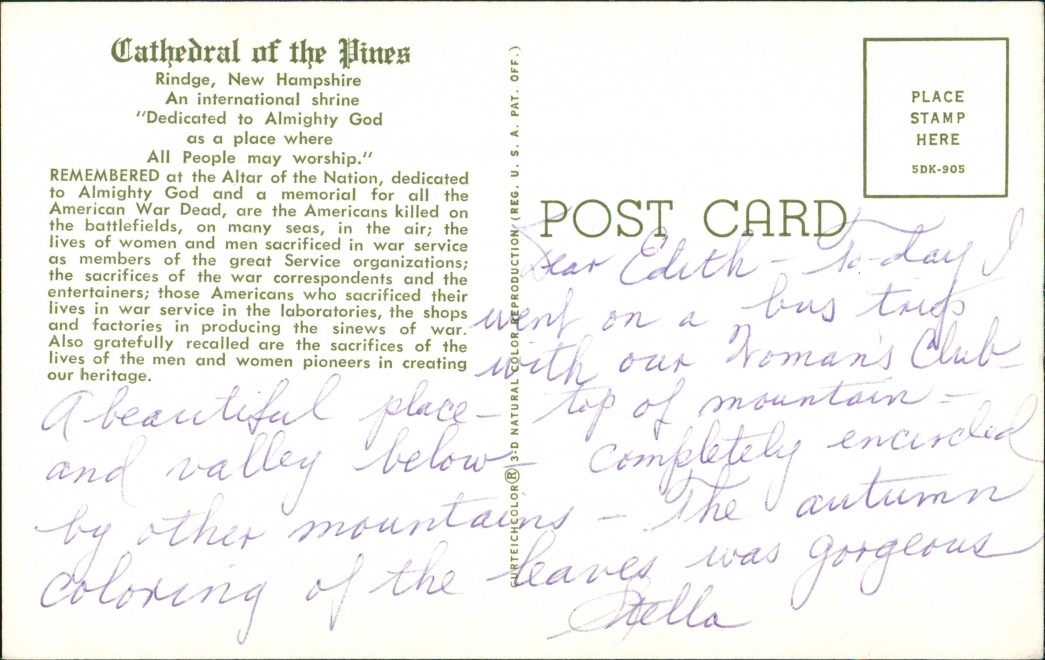 Cathedral of the Pines
Rindge, New Hampshire
An international shrine
"Dedicated to Almighty God
as a place where
All People may worship."
REMEMBERED at the Altar of the Nation, dedicated
to Almighty God and a memorial for all the
American War Dead, are the Americans killed on
the battlefields, on many seas, in the air; the
lives of women and men sacrificed in war service
as members of the great Service organizations;
the sacrifices of the war correspondents and the
entertainers; those Americans who sacrificed their
lives in war service in the laboratories, the shops
and factories in producing the sinews of war.
Also gratefully recalled are the sacrifices of the
lives of the men and women pioneers in creating
our heritage.
CURTEICHCOLOR® 3-D NATURAL COLOR REPRODUCTION (REG. U. S. A. PAT. OFF.)
PLACE
STAMP
HERE
5DK-905
POST CARD
Dear Edith - To-day I
went on a bus trip
with our Woman's Club-
A beautiful place- top of mountain -
and valley below- completely encircled
by other mountains - The autumn
coloring of the leaves was gorgeous
Stella